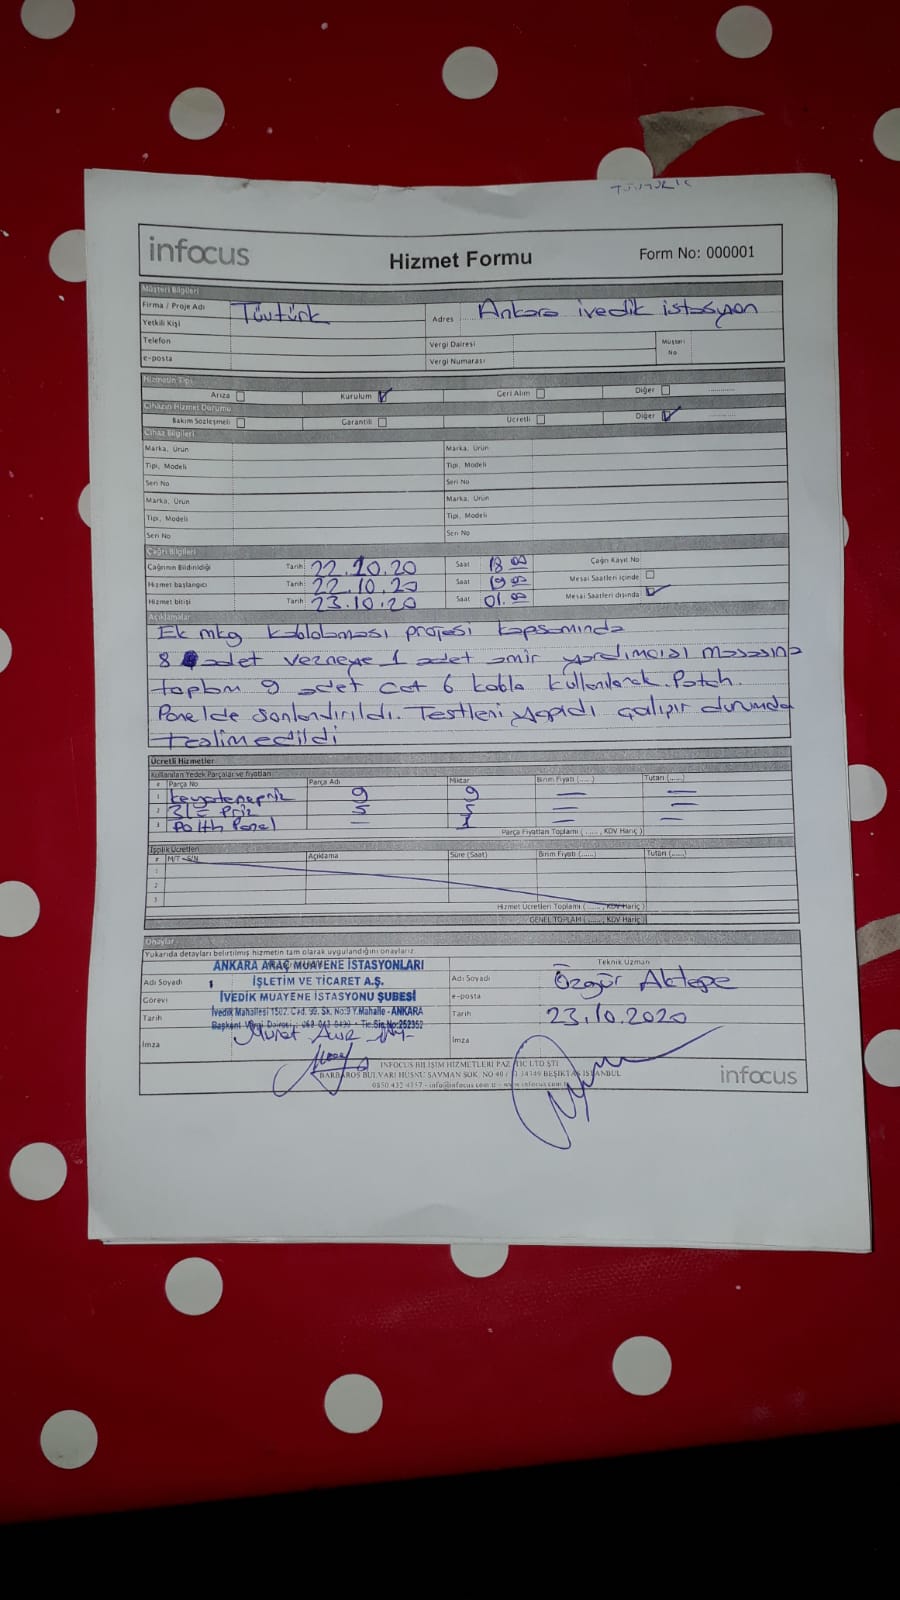 infocus
Hizmet Formu
Form No: 000001
Müşteri Bilgileri
Firma / Proje Adı Tüvtürk
Adres Ankara ivedik istasyon
Yetkili Kişi
Telefon
Vergi Dairesi
Müşteri No
e-posta
Vergi Numarası
Hizmetin Tipi
Arıza Kurulum Geri Alım Diğer ............
Cihazın Hizmet Durumu
Bakım Sözleşmeli Garantili Ücretli Diğer ............
Cihaz Bilgileri
Marka, Ürün Marka, Ürün
Tipi, Modeli Tipi, Modeli
Seri No Seri No
Marka, Ürün Marka, Ürün
Tipi, Modeli Tipi, Modeli
Seri No Seri No
Çağrı Bilgileri
Çağrının Bildirildiği Tarih: 22.10.20 Saat 18 00 Çağrı Kayıt No
Hizmet başlangıcı Tarih: 22.10.20 Saat 19 00 Mesai Saatleri içinde
Hizmet bitişi Tarih: 23.10.20 Saat 01.00 Mesai Saatleri dışında
Açıklamalar
Ek mkg kablolaması projesi kapsamında
8 adet vezneye 1 adet amir yardımcısı masasına
toplam 9 adet cat 6 kablo kullanılarak. Patch.
Panelde sonlandırıldı. Testleri yapıldı çalışır durumda
teslim edildi
Ücretli Hizmetler
Kullanılan Yedek Parçalar ve fiyatları
# Parça No Parça Adı Miktar Birim Fiyatı (......) Tutarı (......)
1 9 9 — —
2 Priz 5 5 — —
3 Panel — 1 — —
Parça Fiyatları Toplamı ( ......, KDV Hariç )
İşçilik Ücretleri
# M/T - S/N Açıklama Süre (Saat) Birim Fiyatı (......) Tutarı (......)
1
2
3
Hizmet Ücretleri Toplamı ( ......, KDV Hariç )
GENEL TOPLAM ( ......, KDV Hariç )
Onaylar
Yukarıda detayları belirtilmiş hizmetin tam olarak uygulandığını onaylarız.
ANKARA ARAÇ MUAYENE İSTASYONLARI
İŞLETİM VE TİCARET A.Ş.
İVEDİK MUAYENE İSTASYONU ŞUBESİ
İvedik Mahallesi 1507. Cad. 99. Sk. No:9 Y.Mahalle - ANKARA
Tic.Sic.No:252352
Murat
Adı Soyadı
Görevi
Tarih
İmza
Teknik Uzman
Adı Soyadı Özgür Aktepe
e-posta
Tarih 23.10.2020
İmza
INFOCUS BİLİŞİM HİZMETLERİ PAZ. TİC LTD ŞTİ
BARBAROS BULVARI HÜSNÜ SAVMAN SOK. NO 34349 BEŞİKTAŞ İSTANBUL
0850 432 4157 - info@infocus.com.tr - www.infocus.com.tr
infocus